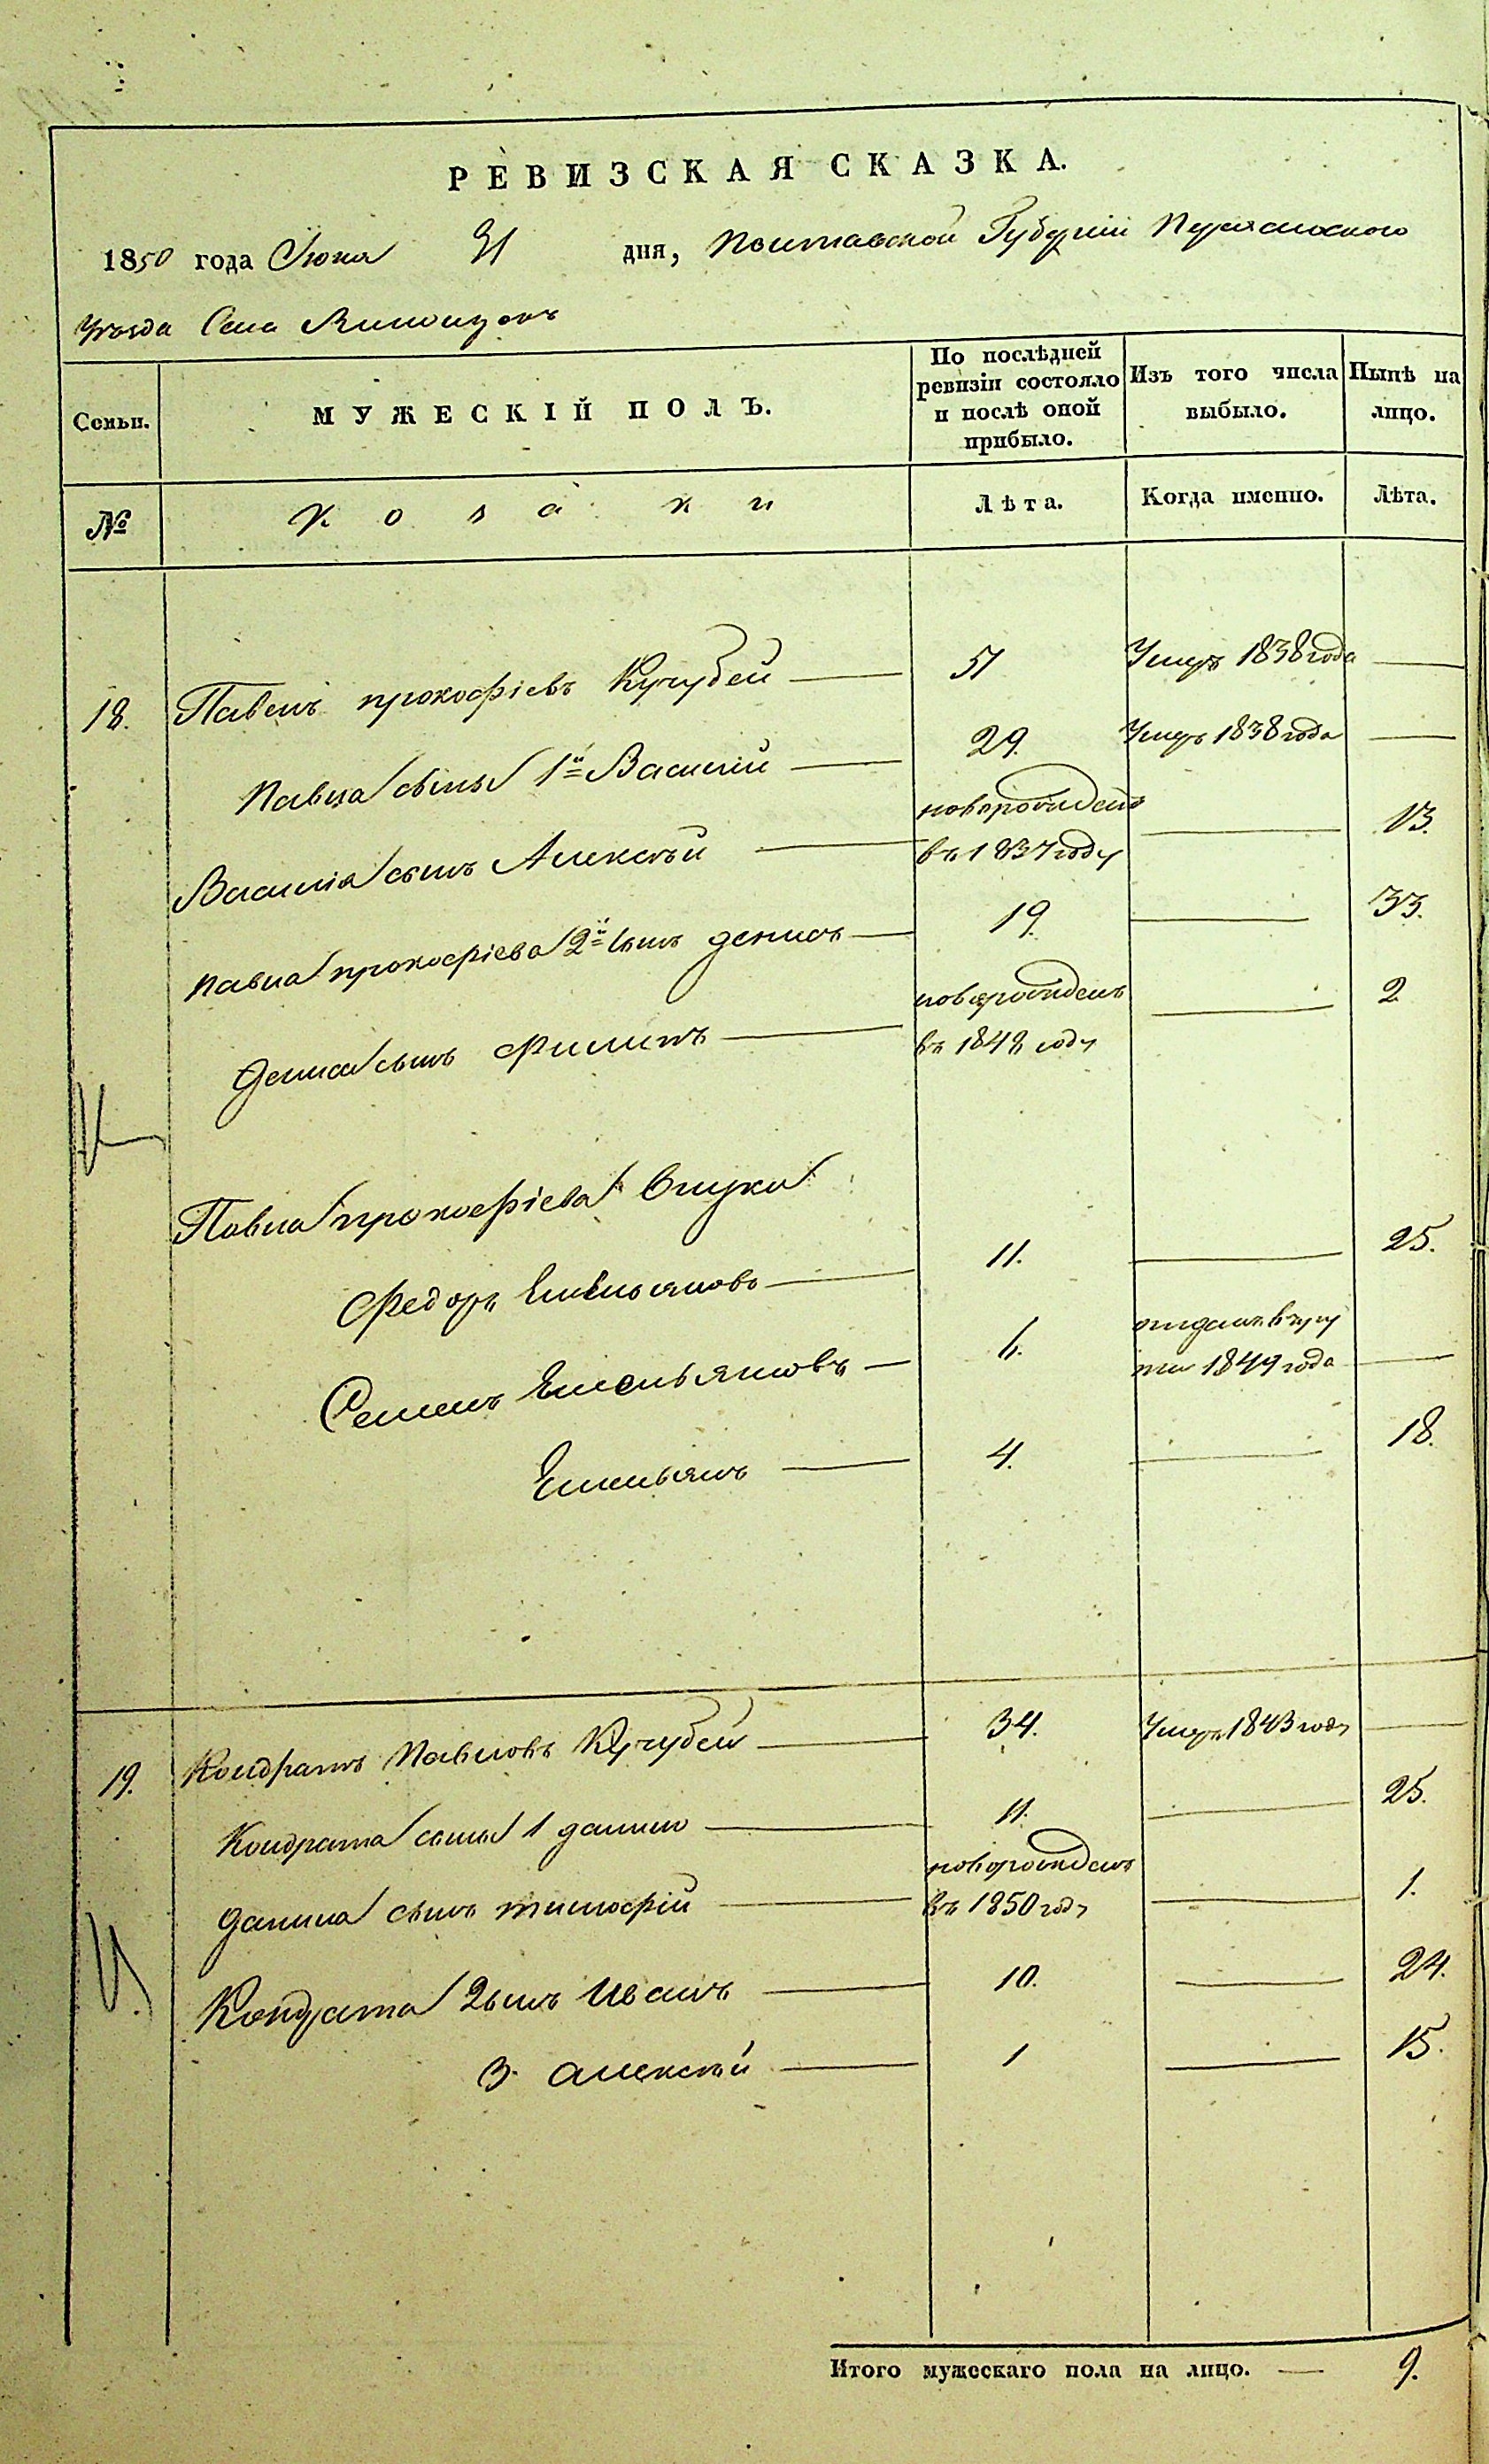 РЕВИЗСКАЯ СКАЗКА.
1850 года Июна 31 дня, Полтавской Губерніи Переяславского
Уѣзда Села
Семьи. МУЖЕСКІЙ ПОЛЪ. По послѣдней ревизіи состояло и послѣ оной прибыло. Изъ того числа выбыло. Нынѣ на лицо.
№ Козаки Лѣта. Когда именно. Лѣта.
18. Павелъ прокофіевъ Кучубей — 51 Умеръ 1838 года —
Павла сыны 1й Василій — 29. Умеръ 1838 года —
Василія сынъ Алексѣй — новорожденъ въ 1837 году — 13.
Павла прокофіева 2й сынъ денисъ — 19. — 33.
Дениса сынъ Филипъ — новорожденъ въ 1848 году — 2
Павла прокофіева внуки
Федоръ Емельяновъ — 11. — 25.
Семенъ Емельяновъ — 6. отданъ в рекру ты 1849 года —
Емельянъ — 4. — 18.
19. Кондратъ Павловъ Кучубей — 34. Умеръ 1843 года —
Кондрата сыны 1 данило — 11. — 25.
Данила сынъ тимофій — новорожденъ въ 1850 году — 1.
Кондрата 2 сынъ Иванъ — 10. — 24.
3. алексѣй — 1 — 15.
Итого мужескаго пола на лицо. — 9.